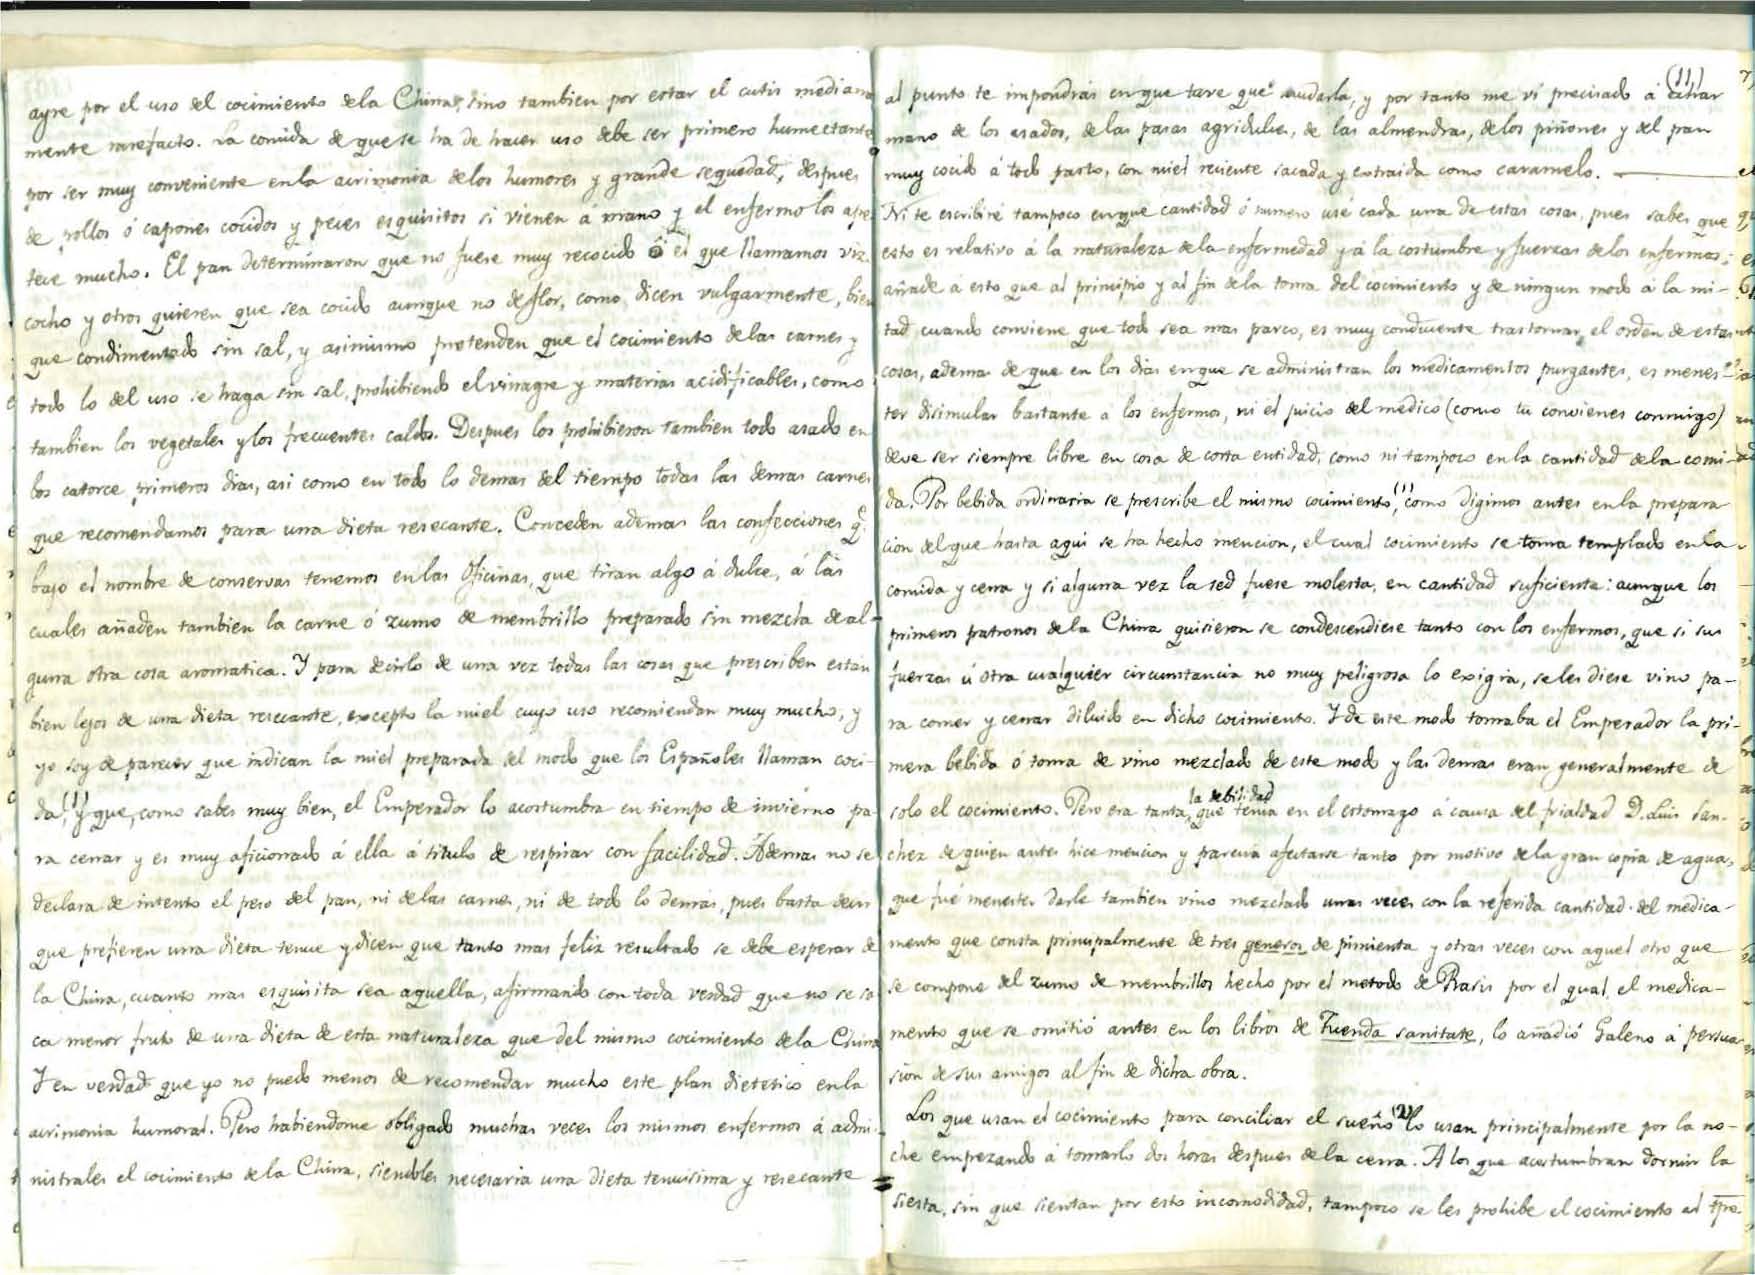 ayre por el uso del cocimiento dela China, sino tambien por estar el cutis mediana
mente rarefacto. La comida de que se ha de hacer uso debe ser primero humectante
por ser muy conveniente en la acrimonia delos humores y grande sequedad, despues
de pollos ó capones cocidos y peces esquisitos si vienen á mano y el enfermo los ape-
tece mucho. El pan determinaron que no fuese muy recocido ó el que llamamos viz-
cocho y otros quieren que sea cocido aunque no deflor, como dicen vulgarmente, bien
que condimentado sin sal, y asimismo pretenden que el cocimiento delas carnes y
todo lo del uso se haga sin sal, prohibiendo el vinagre y materias acidificables, como
tambien los vegetales y los frecuentes caldos. Despues los prohibieron tambien todo asado en
los catorce primeros dias, asi como en todo lo demas del tiempo todas las demas carnes
que recomendamos para una dieta resecante. Conceden ademas las confecciones q.e
bajo el nombre de conservas tenemos en las Oficinas, que tiran algo á dulce, á las
cuales añaden tambien la carne ó zumo de membrillo preparado sin mezcla de al-
guna otra cosa aromatica. Y para decirlo de una vez todas las cosas que prescriben estan
bien lejos de una dieta resecante, excepto la miel cuyo uso recomiendan muy mucho, y
yo soy de parecer que indican la miel preparada del modo que los Españoles llaman coci-
da,(1) y que, como sabes muy bien, el Emperador lo acostumbra en tiempo de invierno pa-
ra cenar y es muy aficionado á ella á titulo de respirar con facilidad. Ademas no se
declara de intento el peso del pan, ni delas carnes, ni de todo lo demas, pues basta decir
que prefieren una dieta tenue y dicen que tanto mas feliz resultado se debe esperar de
la China, cuanto mas esquisita sea aquella, afirmando con toda verdad que no se sa-
ca menor fruto de una dieta de esta naturaleza que del mismo cocimiento dela China
Y en verdad que yo no puedo menos de recomendar mucho este plan dietetico en la
acrimonia humoral. Pero habiendome obligado muchas veces los mismos enfermos á admi-
nistrales el cocimiento dela China, siendoles necesaria una dieta tenuisima y resecante
(11)
al punto te impondrás en que tuve que mudarla, y por tanto me ví precisado á echar
mano de los asados, delas pasas agridulces, de las almendras, delos piñones y del pan
muy cocido á todo pasto, con miel reciente sacada y extraida como caramelo.
Ni te escribiré tampoco en que cantidad ó numero usé cada una de estas cosas, pues sabes que
esto es relativo á la naturaleza dela enfermedad y á la costumbre y fuerzas delos enfermos;
añade a esto que al principio y al fin dela toma del cocimiento y de ningun modo á la mi-
tad, cuando conviene que todo sea mas parco, es muy conducente trastornar el orden de estas
cosas, ademas de que en los dias en que se administran los medicamentos purgantes, es menes-
ter disimular bastante a los enfermos, ni el juicio del medico (como tu convienes conmigo)
deve ser siempre libre en cosa de corta entidad, como ni tampoco en la cantidad dela comi-
da. Por bebida ordinaria se prescribe el mismo cocimiento,(1) como digimos antes en la prepara
cion del que hasta aqui se ha hecho mencion, el cual cocimiento se toma templado en la
comida y cena y si alguna vez la sed fuese molesta, en cantidad suficiente: aunque los
primeros patronos dela China quisieron se condescendiese tanto con los enfermos, que si sus
fuerzas ú otra cualquier circunstancia no muy peligrosa lo exigia, se les diese vino pa-
ra comer y cenar diluido en dicho cocimiento. Y de este modo tomaba el Emperador la pri-
mera bebida ó toma de vino mezclado de este modo y las demas eran generalmente de
solo el cocimiento. Pero era tanta la debilidad que tenia en el estomago á causa del frialdad D. Luis San-
chez de quien antes hice mencion y parecia afectarse tanto por motivo dela gran copia de agua,
que fué menester darle tambien vino mezclado unas veces con la referida cantidad del medica-
mento que consta principalmente de tres generos de pimienta y otras veces con aquel otro que
se compone del zumo de membrillos hecho por el metodo de Rasis por el qual el medica-
mento que se omitió antes en los libros de Tuenda sanitate, lo añadió Galeno á persua-
sion de sus amigos al fin de dicha obra.
Los que usan el cocimiento para conciliar el sueño(2) lo usan principalmente por la no-
che empezando á tomarlo dos horas despues dela cena. A los que acostumbran dormir la
siesta, sin que sientan por esto incomodidad, tampoco se les prohibe el cocimiento al tpo